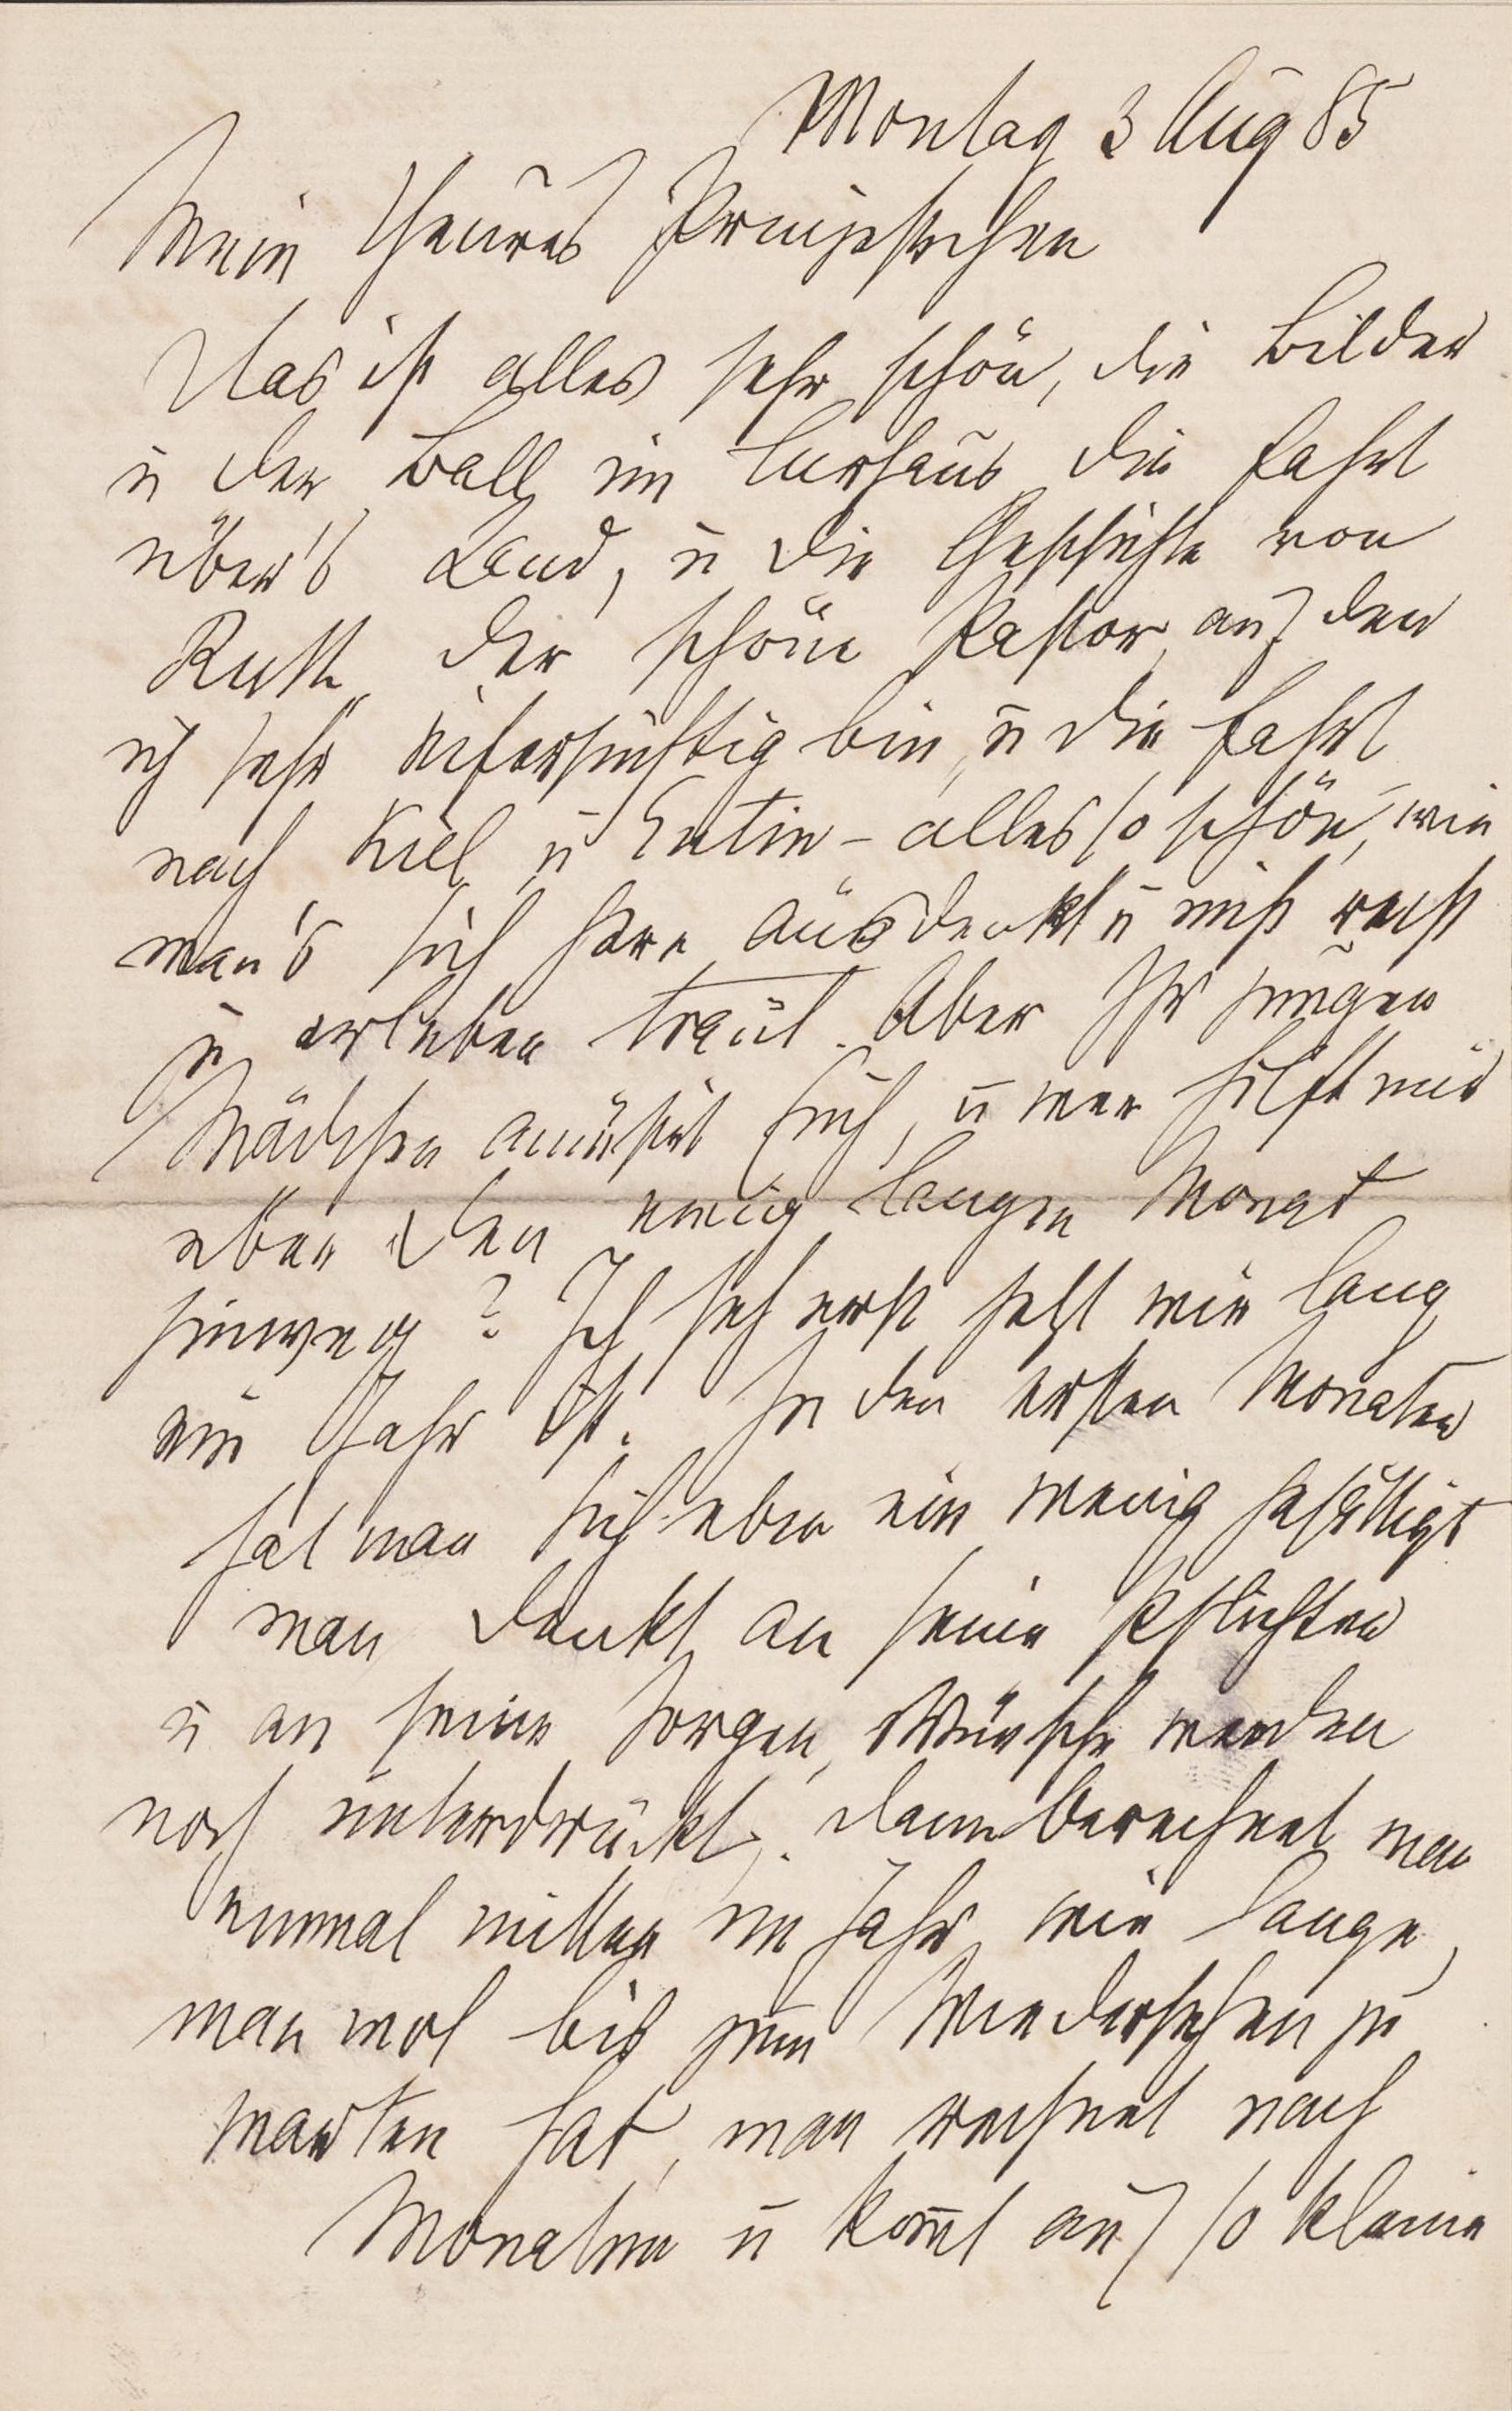 Montag 3 Aug 85
Mein theures Prinzeßchen
Das ist alles sehr schön, die Bilder
u der Ball im Curhaus die Fahrt
über's Land, u die Geschichte von
Ruth, der schöne Pastor, auf den
ich sehr eifersüchtig bin, u die Fahrt
nach Kiel u Eutin – alles so schön, wie
man's sich hier ausdenkt u nicht recht
u erleben traut. Aber Ihr jungen
Mädchen amüsirt Euch, u wer hilft mir
über den ewig langen Monat
hinweg? Ich seh erst jetzt wie lang
ein Jahr ist. In den ersten Monaten
hat man sich eben ein wenig gesättigt
man denkt an seine Pflichten
u an seine Sorgen, Wünsche werden
noch unterdrückt. dann berechnet man
einmal mitten im Jahr wie lange,
man wol bis zum Wiedersehen zu
warten hat, man rechnet nach
Monaten u kom̅t auf so kleine